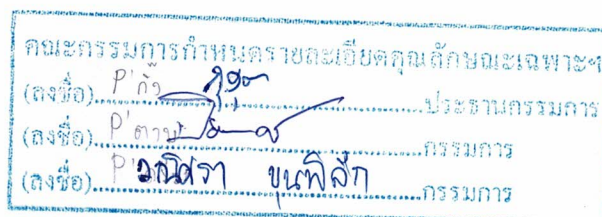 คณะกรรมการกำหนดรายละเอียดคุณลักษณะเฉพาะฯ
(ลงชื่อ) P'กิ๊ง ประธานกรรมการ
(ลงชื่อ) P'ตาม กรรมการ
(ลงชื่อ) P' วณิศรา ขุนพิลึก กรรมการ